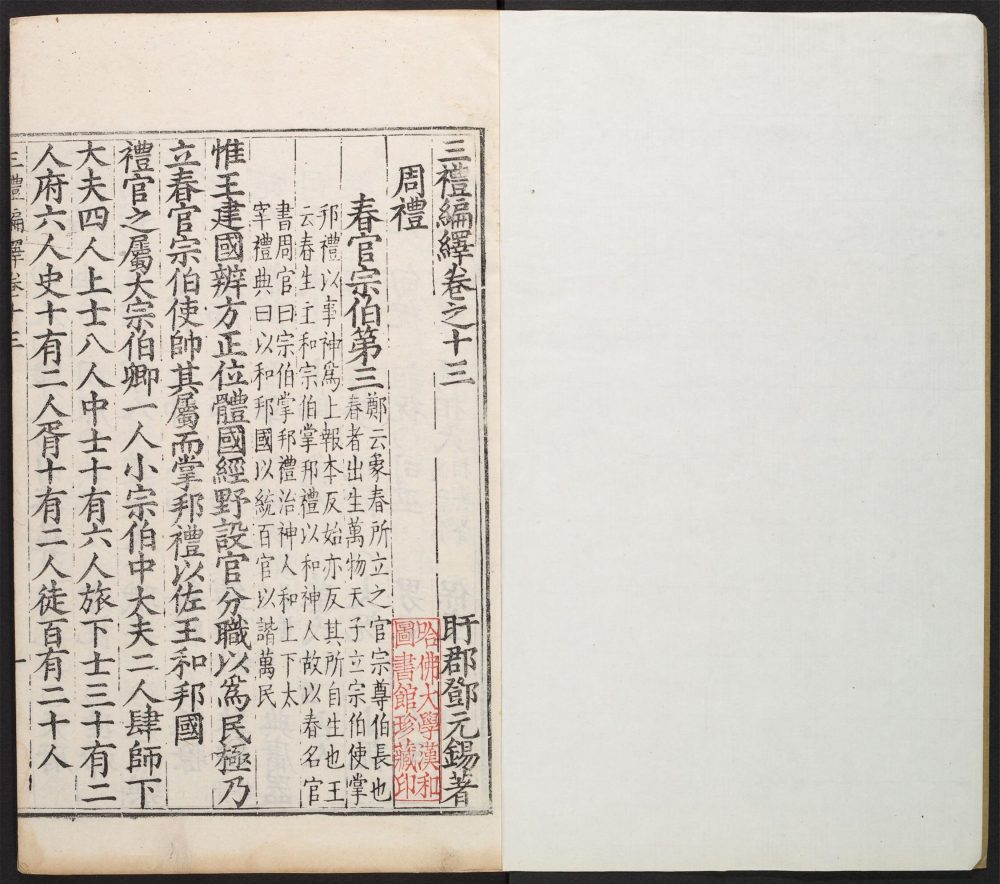 三禮編繹卷之十三
盱郡鄧元錫著
周禮
哈佛大學漢和
圖書館珍藏印
春官宗伯第三
鄭云象春所立之官宗尊伯長也
春者出生萬物天子立宗伯使掌
邦禮以事神爲上報本反始亦反其所自生也王
云春生主和宗伯掌邦禮以和神人故以春名官
書周官曰宗伯掌邦禮治神人和上下太
宰禮典曰以和邦國以統百官以諧萬民
惟王建國辨方正位體國經野設官分職以爲民極乃
立春官宗伯使帥其屬而掌邦禮以佐王和邦國
禮官之屬大宗伯卿一人小宗伯中大夫二人肆師下
大夫四人上士八人中士十有六人旅下士三十有二
人府六人史十有二人胥十有二人徒百有二十人
三禮編繹卷十三
一